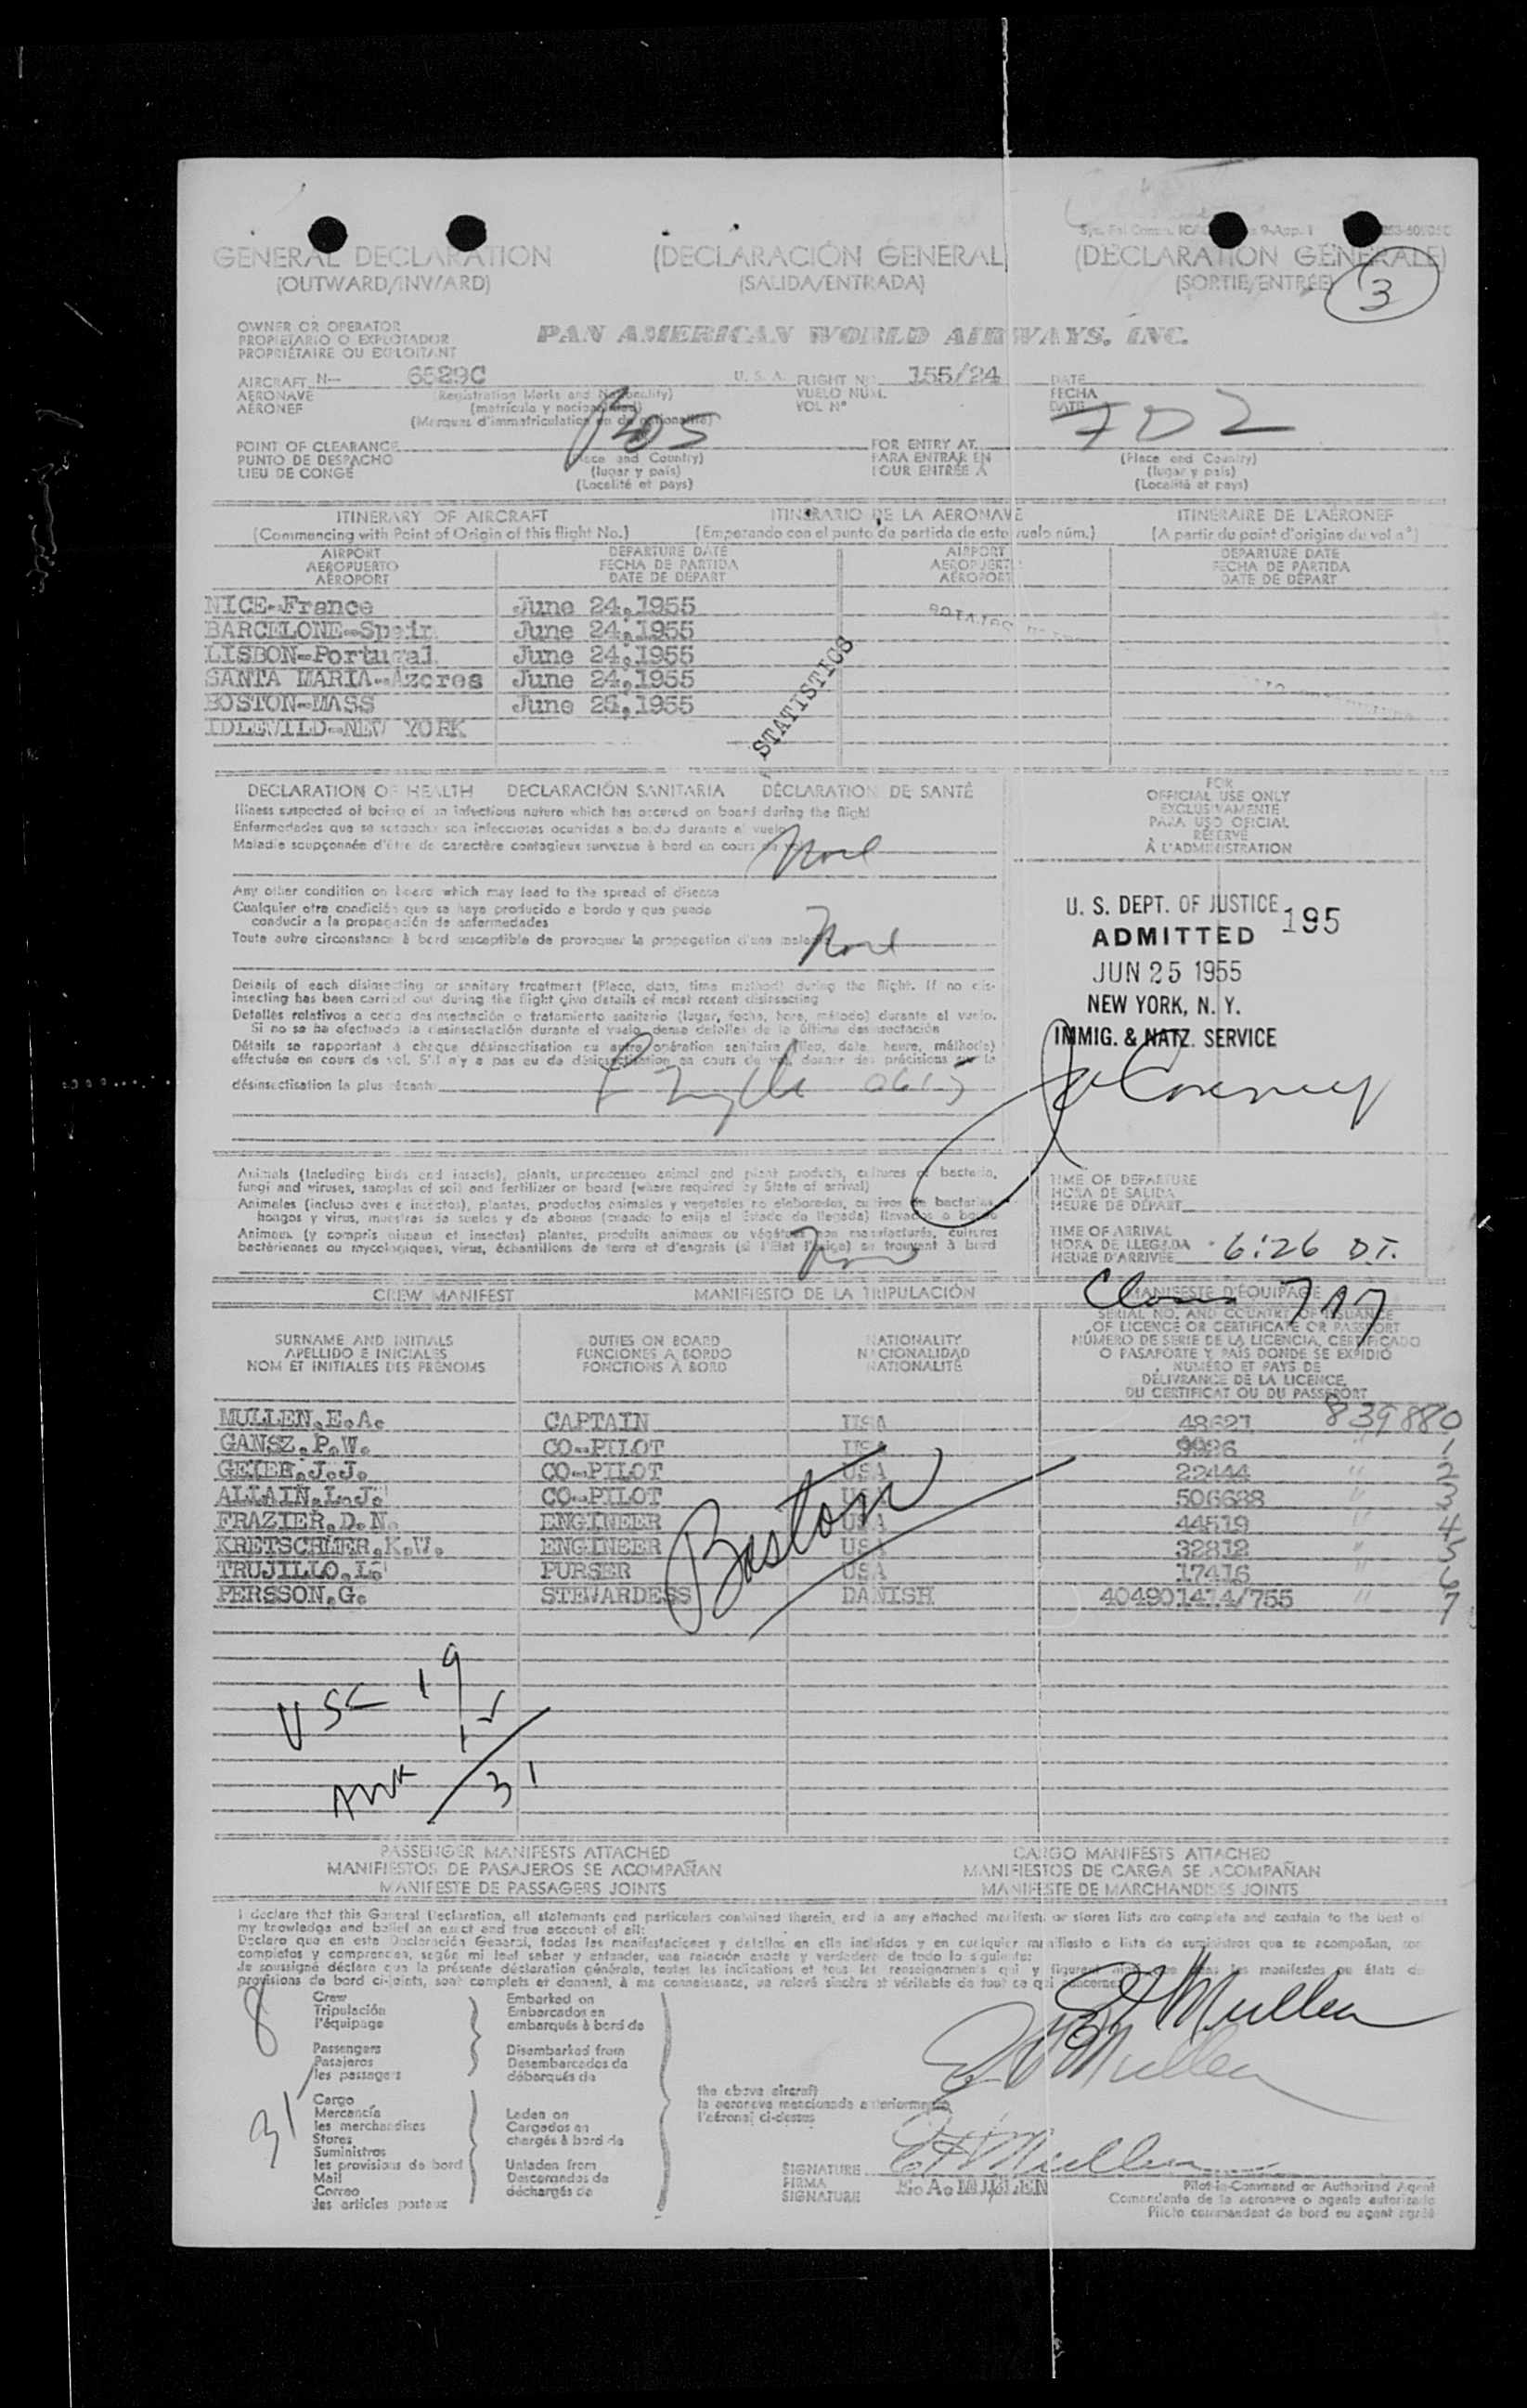 GENERAL DECLARATION (DECLARACIÓN GENERAL) (DECLARATION GÉNÉRALE)
(OUTWARD/INWARD) (SALIDA/ENTRADA) (SORTIE/ENTRÉE) 3
OWNER OR OPERATOR
PROPIETARIO O EXPLOTADOR
PROPRIÉTAIRE OU EXPLOITANT
PAN AMERICAN WORLD AIRWAYS, INC.
AIRCRAFT N— 6529C U. S. A. FLIGHT NO. 155/24 DATE
AERONAVE (Registration Marks and Nationality) VUELO NÚM. FECHA
AÉRONEF (matrícula y nacionalidad) VOL N° DATE
(Marques d'immatriculation et de nationalité)
BOS
POINT OF CLEARANCE FOR ENTRY AT
PUNTO DE DESPACHO (Place and Country) PARA ENTRAR EN (Place and Country)
LIEU DE CONGÉ (lugar y país) POUR ENTRÉE À (lugar y país)
(Localité et pays) (Localité et pays)
ITINERARY OF AIRCRAFT ITINERARIO DE LA AERONAVE ITINÉRAIRE DE L'AÉRONEF
(Commencing with Point of Origin of this flight No.) (Empezando con el punto de partida de este vuelo núm.) (A partir du point d'origine du vol n°)
AIRPORT DEPARTURE DATE AIRPORT DEPARTURE DATE
AEROPUERTO FECHA DE PARTIDA AEROPUERTO FECHA DE PARTIDA
AÉROPORT DATE DE DÉPART AÉROPORT DATE DE DÉPART
NICE-France June 24,1955
BARCELONE-Spain June 24,1955
LISBON-Portugal June 24,1955
SANTA MARIA-Azores June 24,1955
BOSTON-MASS June 25,1955
IDLEWILD-NEW YORK
STATISTICS
DECLARATION OF HEALTH DECLARACIÓN SANITARIA DÉCLARATION DE SANTÉ
Illness suspected of being of an infectious nature which has occured on board during the flight
Enfermedades que se sospecha son infecciosas ocurridas a bordo durante el vuelo
Maladie soupçonnée d'être de caractère contagieux survenue à bord en cours de vol
None
Any other condition on board which may lead to the spread of disease
Cualquier otra condición que se haya producido a bordo y que pueda
conducir a la propagación de enfermedades
Toute autre circonstance à bord susceptible de provoquer la propagation d'une maladie
None
Details of each disinsecting or sanitary treatment (Place, date, time method) during the flight. If no dis-
insecting has been carried out during the flight give details of most recent disinsecting
Detalles relativos a cada desinsectación o tratamiento sanitario (lugar, fecha, hora, método) durante el vuelo.
Si no se ha efectuado la desinsectación durante el vuelo, dense detalles de la última desinsectación
Détails se rapportant à chaque désinsectisation ou autre opération sanitaire (lieu, date, heure, méthode)
effectuée en cours de vol. S'il n'y a pas eu de désinsectisation en cours de vol, donner des précisions sur la
désinsectisation la plus récente
0615
Animals (Including birds and insects), plants, unprocessed animal and plant products, cultures of bacteria,
fungi and viruses, samples of soil and fertilizer on board (where required by State of arrival)
Animales (incluso aves e insectos), plantas, productos animales y vegetales no elaborados, cultivos de bacterias
hongos y virus, muestras de suelos y de abonos (cuando lo exija el Estado de llegada) llevados a bordo
Animaux (y compris oiseaux et insectes) plantes, produits animaux ou végétaux non manufacturés, cultures
bactériennes ou mycologiques, virus, échantillons de terre et d'engrais (si l'État l'exige) se trouvant à bord
FOR
OFFICIAL USE ONLY
EXCLUSIVAMENTE
PARA USO OFICIAL
RÉSERVÉ
À L'ADMINISTRATION
U. S. DEPT. OF JUSTICE 195
ADMITTED
JUN 25 1955
NEW YORK, N. Y.
IMMIG. & NATZ. SERVICE
TIME OF DEPARTURE
HORA DE SALIDA
HEURE DE DÉPART
TIME OF ARRIVAL
HORA DE LLEGADA 6:26 D.T.
HEURE D'ARRIVÉE
CREW MANIFEST MANIFIESTO DE LA TRIPULACIÓN MANIFESTE D'ÉQUIPAGE
SURNAME AND INITIALS DUTIES ON BOARD NATIONALITY SERIAL NO. AND COUNTRY OF ISSUANCE
APELLIDO E INICIALES FUNCIONES A BORDO NACIONALIDAD OF LICENCE OR CERTIFICATE OR PASSPORT
NOM ET INITIALES DES PRÉNOMS FONCTIONS À BORD NATIONALITÉ NÚMERO DE SERIE DE LA LICENCIA, CERTIFICADO
O PASAPORTE Y PAÍS DONDE SE EXPIDIÓ
NUMÉRO ET PAYS DE
DÉLIVRANCE DE LA LICENCE,
DU CERTIFICAT OU DU PASSEPORT
MULLEN.E.A. CAPTAIN USA 48627 839880
GANSZ.P.W. CO-PILOT USA 9986 " 1
GEIER.J.J. CO-PILOT USA 22444 " 2
ALLAIN.L.J. CO-PILOT USA 506688 " 3
FRAZIER.D.N. ENGINEER USA 44519 " 4
KRETSCHMER.K.W. ENGINEER USA 32812 " 5
TRUJILLO.L. PURSER USA 17416 6
PERSSON.G. STEWARDESS DANISH 404901474/755 " 7
Boston
USC 19
12
31
PASSENGER MANIFESTS ATTACHED CARGO MANIFESTS ATTACHED
MANIFIESTOS DE PASAJEROS SE ACOMPAÑAN MANIFIESTOS DE CARGA SE ACOMPAÑAN
MANIFESTE DE PASSAGERS JOINTS MANIFESTE DE MARCHANDISES JOINTS
I declare that this General Declaration, all statements and particulars contained therein, and in any attached manifests or stores lists are complete and contain to the best of
my knowledge and belief an exact and true account of all:
Declaro que en esta Declaración General, todas las manifestaciones y detalles en ella incluidos y en cualquier manifiesto o lista de suministros que se acompañan, son
completos y comprenden, según mi leal saber y entender, una relación exacta y verdadera de todo lo siguiente:
Je soussigné déclare que la présente déclaration générale, toutes les indications et tous les renseignements qui y figurent ainsi que dans les manifestes ou états de
provisions de bord ci-joints, sont complets et donnent, à ma connaissance, un relevé sincère et véritable de tout ce qui concerne:
8 Crew Embarked on
Tripulación Embarcados en
l'équipage embarqués à bord de
Passengers Disembarked from
Pasajeros Desembarcados de
les passagers débarqués de
31 Cargo
Mercancía Laden on
les merchandises Cargados en
Stores chargés à bord de
Suministros
les provisions de bord Unladen from
Mail Descargados de
Correo déchargés de
les articles postaux
the above aircraft
la aeronave mencionada anteriormente
l'aéronef ci-dessus
E A Mullen
E A Mullen
SIGNATURE E A Mullen
FIRMA E. A. MULLEN Pilot-in-Command or Authorized Agent
SIGNATURE Comandante de la aeronave o agente autorizado
Pilote commandant de bord ou agent agréé